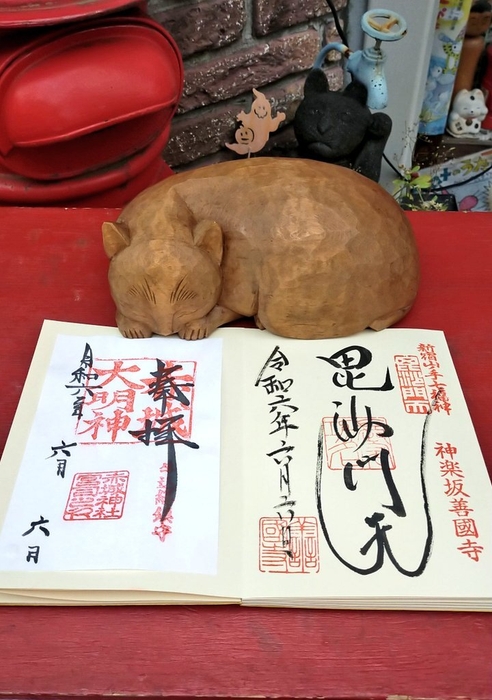 新宿山之手七福神
毘沙門天
神楽坂善國寺
令和六年六月六日
善國寺
奉拝
赤城
大明神
赤城神社
令和六年
六月
六日